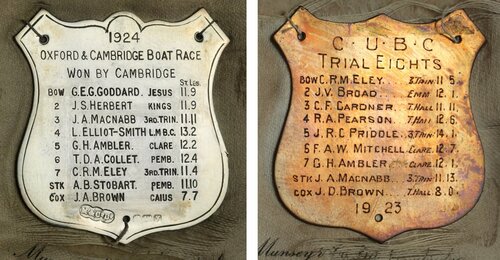 1924
OXFORD & CAMBRIDGE BOAT RACE
WON BY CAMBRIDGE
ST. LBS.
BOW G.E.G. GODDARD. JESUS 11.9
2 J.S. HERBERT KINGS 11.9
3 J.A. MACNABB 3RD.TRIN. 11.11
4 L. ELLIOT-SMITH L.M.B.C. 13.2
5 G.H. AMBLER. CLARE 12.2
6 T.D.A. COLLET. PEMB. 12.4
7 C.R.M. ELEY 3RD.TRIN. 11.4
STK A.B. STOBART. PEMB. 11.10
COX J.A. BROWN CAIUS 7.7
C.U.B.C
TRIAL EIGHTS
BOW C.R.M. ELEY. 3.TRIN. 11.5.
2 J.V. BROAD. EMM 12.1.
3 C.F. GARDNER. T.HALL 11.11.
4 R.A. PEARSON. T.HALL 12.6.
5 J.R.C. PRIDDLE. 3.TRIN. 14.1.
6 F.A.W. MITCHELL. CLARE. 12.7.
7 G.H. AMBLER. CLARE. 12.1.
STK J.A. MACNABB. 3.TRIN. 11.13.
COX J.D. BROWN. T.HALL 8.0.
1923